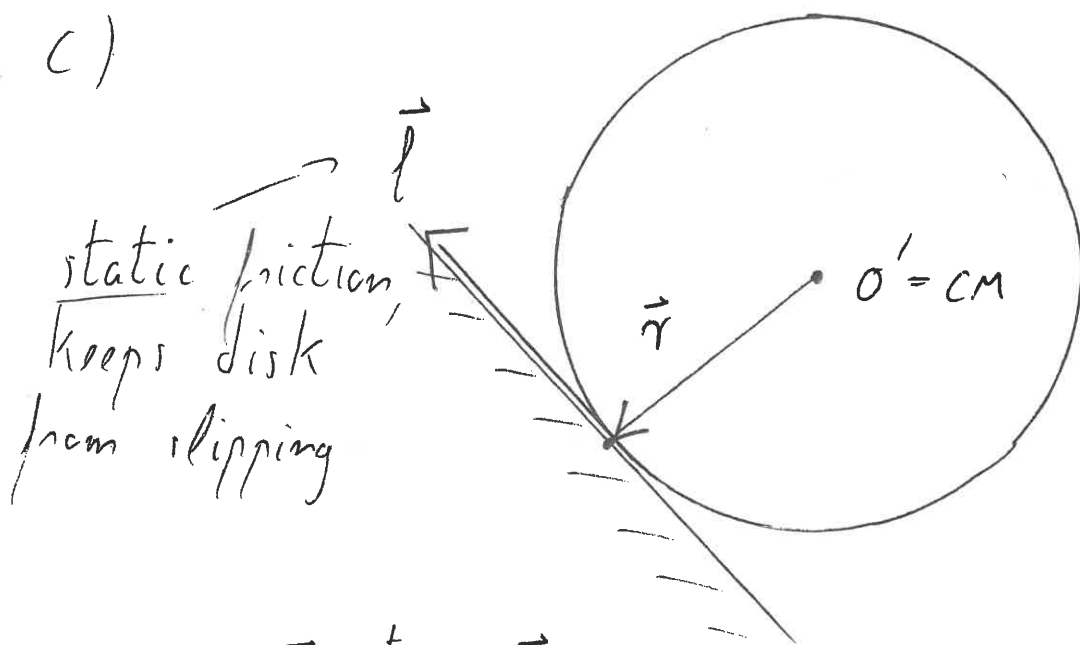 c)
f⃗
static friction,
keeps disk
from slipping
r⃗
O' = CM